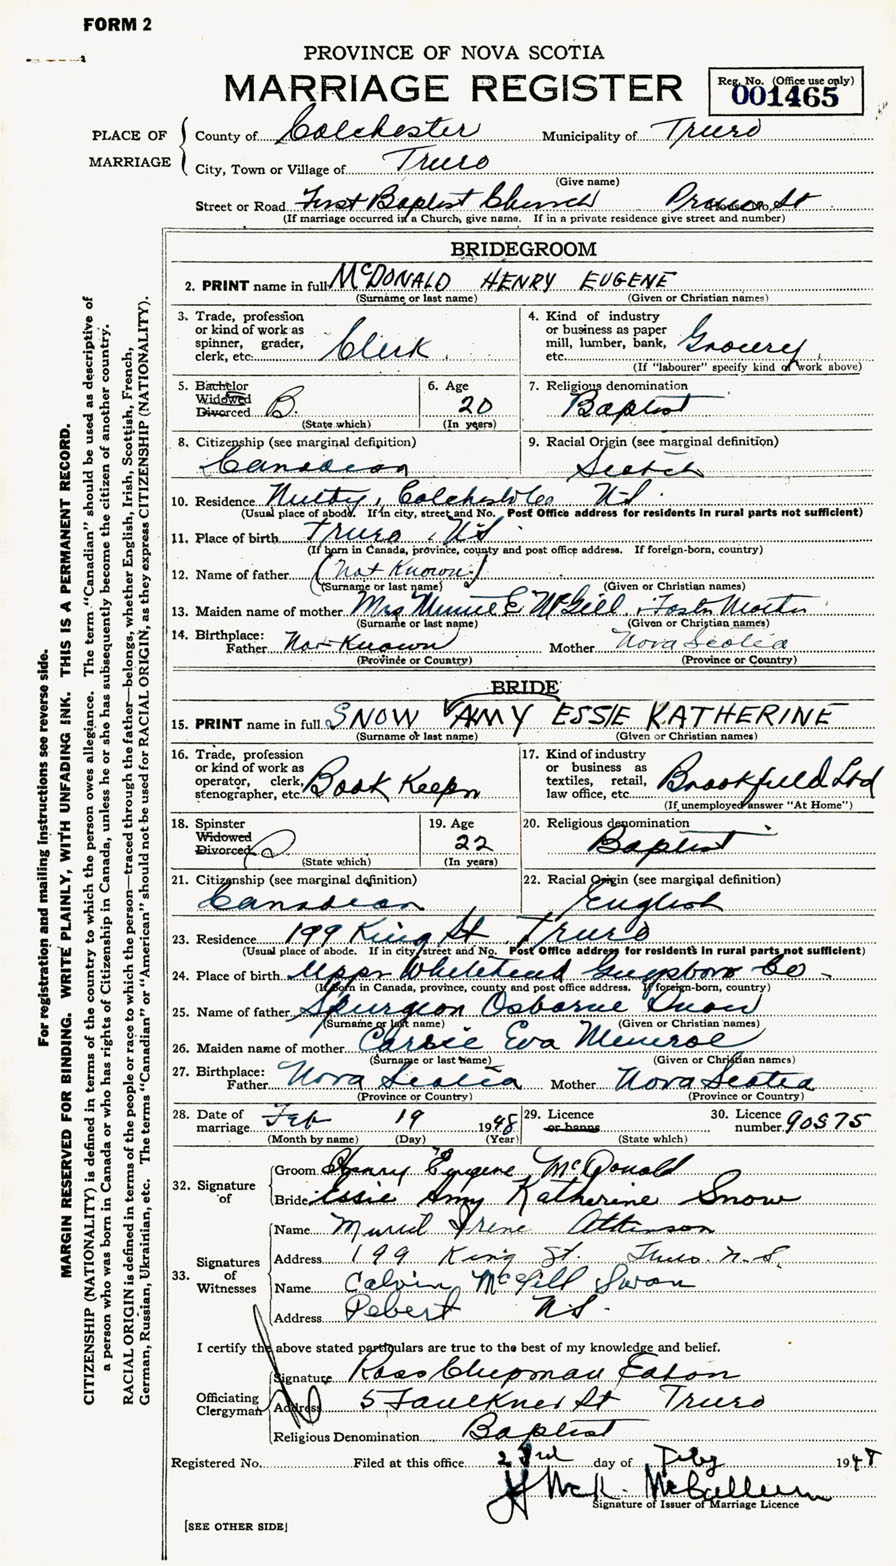 FORM 2
PROVINCE OF NOVA SCOTIA
MARRIAGE REGISTER
Reg. No. (Office use only)
001465
PLACE OF MARRIAGE
County of Colchester Municipality of Truro
City, Town or Village of Truro
(Give name)
Street or Road First Baptist Church Prince St
(If marriage occurred in a Church, give name. If in a private residence give street and number)
BRIDEGROOM
2. PRINT name in full McDONALD HENRY EUGENE
(Surname or last name) (Given or Christian names)
3. Trade, profession or kind of work as spinner, grader, clerk, etc. Clerk
4. Kind of industry or business as paper mill, lumber, bank, etc. Grocery
(If "labourer" specify kind of work above)
5. Bachelor Widowed Divorced B.
(State which)
6. Age 20
(In years)
7. Religious denomination Baptist
8. Citizenship (see marginal definition)
Canadian
9. Racial Origin (see marginal definition)
Scotch
10. Residence Nuttby, Colchester Co N.S.
(Usual place of abode. If in city, street and No. Post Office address for residents in rural parts not sufficient)
11. Place of birth Truro, N.S.
(If born in Canada, province, county and post office address. If foreign-born, country)
12. Name of father (Not Known)
(Surname or last name) (Given or Christian names)
13. Maiden name of mother Mrs Minnie E McGill, Foster Mother
(Surname or last name) (Given or Christian names)
14. Birthplace:
Father Not Known Mother Nova Scotia
(Province or Country) (Province or Country)
BRIDE
15. PRINT name in full SNOW AMY ESSIE KATHERINE
(Surname or last name) (Given or Christian names)
16. Trade, profession or kind of work as operator, clerk, stenographer, etc. Book Keeper
17. Kind of industry or business as textiles, retail, law office, etc. Brookfield Ltd
(If unemployed answer "At Home")
18. Spinster Widowed Divorced
(State which)
19. Age 22
(In years)
20. Religious denomination
Baptist
21. Citizenship (see marginal definition)
Canadian
22. Racial Origin (see marginal definition)
English
23. Residence 199 King St Truro
(Usual place of abode. If in city street and No. Post Office address for residents in rural parts not sufficient)
24. Place of birth Upper Whitehead Guysboro Co
(If born in Canada, province, county and post office address. If foreign-born, country)
25. Name of father Spurgeon Osborne Snow
(Surname or last name) (Given or Christian names)
26. Maiden name of mother Carrie Eva Munroe
(Surname or last name) (Given or Christian names)
27. Birthplace:
Father Nova Scotia Mother Nova Scotia
(Province or Country) (Province or Country)
28. Date of marriage Feb 19 1948
(Month by name) (Day) (Year)
29. Licence or banns
(State which)
30. Licence number 90575
32. Signature of
Groom Henry Eugene McDonald
Bride Essie Amy Katherine Snow
33. Signatures of Witnesses
Name Muriel Irene Atkinson
Address 199 King St. Truro. N.S.
Name Calvin McGill Swan
Address Debert N.S.
I certify the above stated particulars are true to the best of my knowledge and belief.
Officiating Clergyman
Signature Ross Chipman Eaton
Address 5 Faulkner St Truro
Religious Denomination Baptist
Registered No. Filed at this office 23rd day of Feby 1948
McCallum
Signature of Issuer of Marriage Licence
[SEE OTHER SIDE]
For registration and mailing instructions see reverse side.
MARGIN RESERVED FOR BINDING. WRITE PLAINLY, WITH UNFADING INK. THIS IS A PERMANENT RECORD.
CITIZENSHIP (NATIONALITY) is defined in terms of the country to which the person owes allegiance. The term "Canadian" should be used as descriptive of
a person who was born in Canada or who has rights of Citizenship in Canada, unless he or she has subsequently become the citizen of another country.
RACIAL ORIGIN is defined in terms of the people or race to which the person—traced through the father—belongs, whether English, Irish, Scottish, French,
German, Russian, Ukrainian, etc. The terms "Canadian" or "American" should not be used for RACIAL ORIGIN, as they express CITIZENSHIP (NATIONALITY).